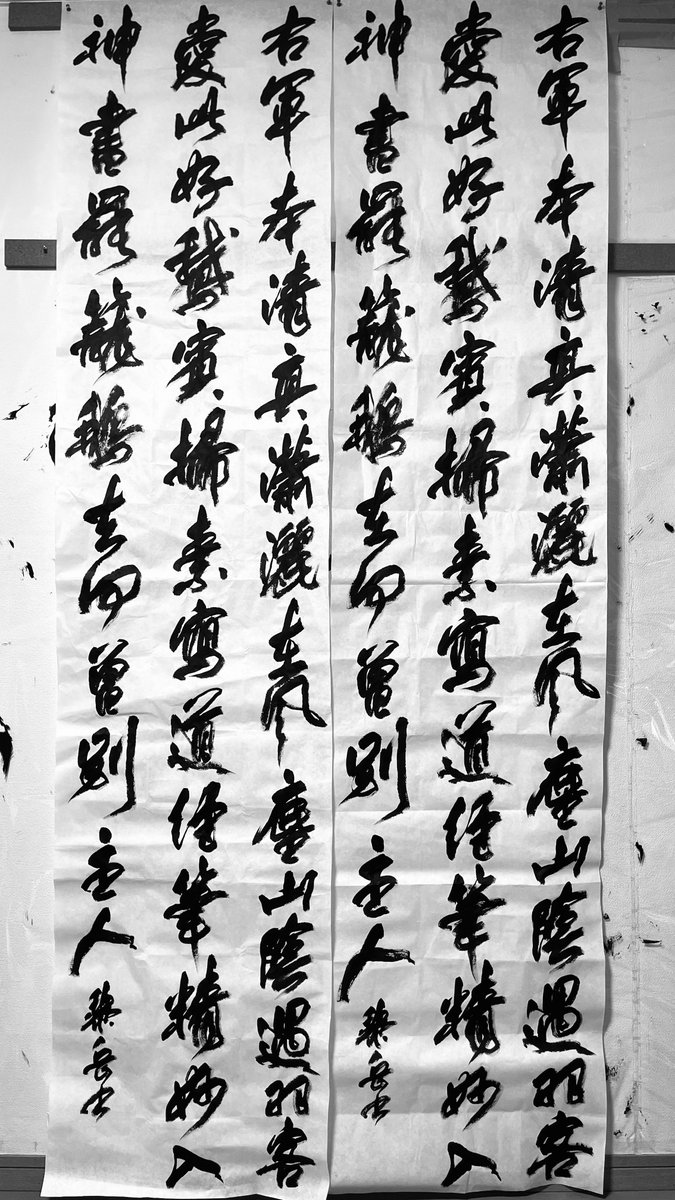 右軍本清真瀟灑在風塵山陰遇羽客
愛此好鵝賓掃素寫道經筆精妙入
神書罷籠鵝去何曾別主人
右軍本清真瀟灑在風塵山陰遇羽客
愛此好鵝賓掃素寫道經筆精妙入
神書罷籠鵝去何曾別主人